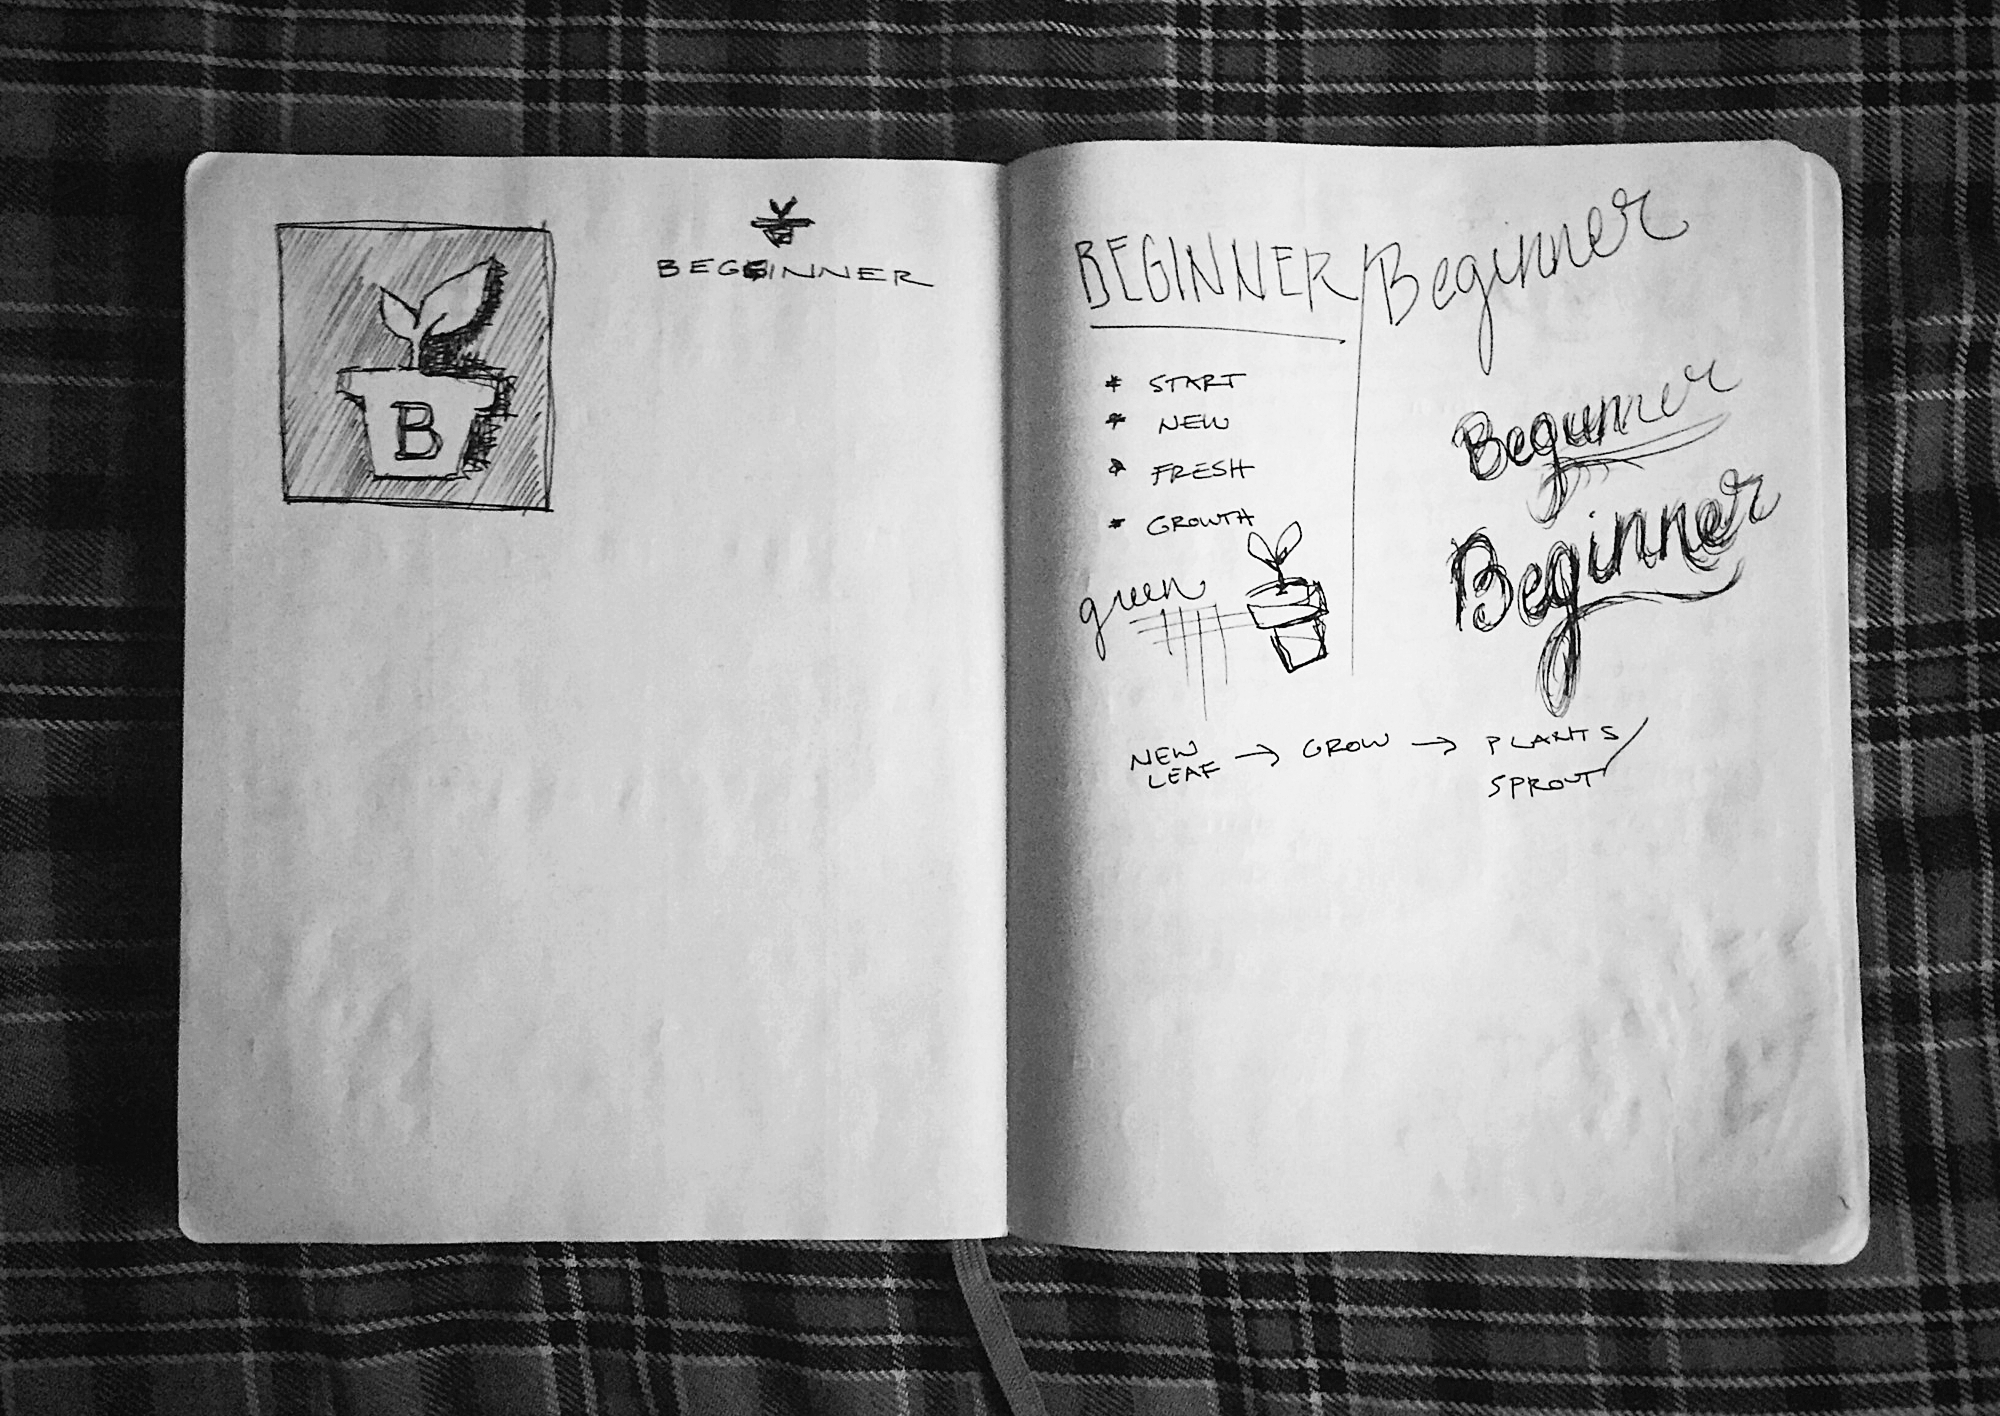 B
BEGINNER
BEGINNER / Beginner
* START
* NEW
* FRESH
* GROWTH
green
Beginner
Beginner
NEW LEAF → GROW → PLANTS /
SPROUT